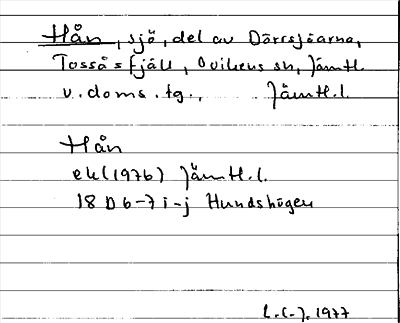 Hån, sjö, del av Dörrsjöarna,
Tossåsfjäll, Ovikens sn, Jämtl.
v. doms. tg., Jämtl. l.
Hån
ek (1976) Jämtl. l.
18 D 6-7 i-j Hundshögen
1977